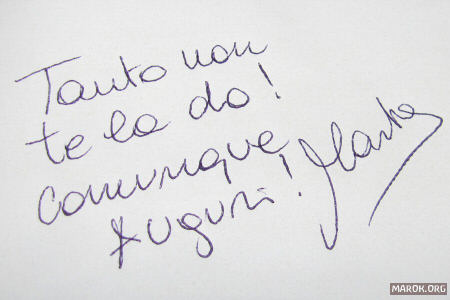 Tanto non
te la do!
comunque
Auguri!
MAROK.ORG